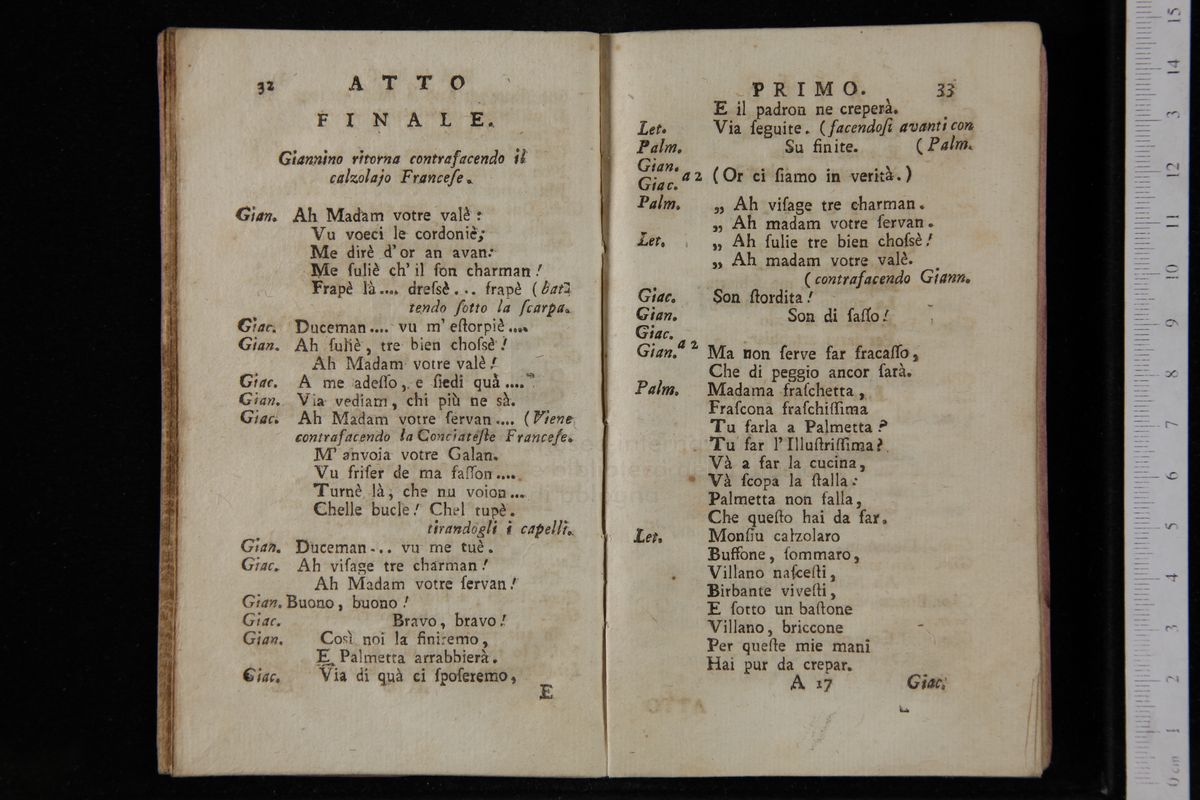 32 ATTO
FINALE.
Giannino ritorna contrafacendo il
calzolajo Franceſe.
Gian. Ah Madam votre valè :
Vu voeci le cordoniè;
Me dirè d' or an avan:
Me ſuliè ch' il ſon charman !
Frapè là.... dreſsè... frapè (bat-
tendo ſotto la ſcarpa.
Giac. Duceman.... vu m' eſtorpiè....
Gian. Ah ſuliè, tre bien choſsè !
Ah Madam votre valè !
Giac. A me adeſſo, e ſiedi quà ....
Gian. Via vediam, chi più ne sà.
Giac. Ah Madam votre ſervan.... (Viene
contrafacendo la Conciateſte Franceſe.
M' anvoia votre Galan.
Vu friſer de ma faſſon....
Turnè là, che nu voion...
Chelle bucle ! Chel tupè.
tirandogli i capelli.
Gian. Duceman... vu me tuè.
Giac. Ah viſage tre charman !
Ah Madam votre ſervan !
Gian. Buono, buono !
Giac. Bravo, bravo !
Gian. Così noi la finiremo,
E Palmetta arrabbierà.
Giac. Via di quà ci ſpoſeremo,
E
PRIMO. 33
E il padron ne creperà.
Let. Via ſeguite. (facendoſi avanti con
Palm. Su finite. (Palm.
Gian.
Giac. a 2 (Or ci ſiamo in verità.)
Palm. „ Ah viſage tre charman.
„ Ah madam votre ſervan.
Let. „ Ah ſulie tre bien choſsè !
„ Ah madam votre valè.
(contrafacendo Giann.
Giac. Son ſtordita !
Gian. Son di ſaſſo !
Giac.
Gian. a 2 Ma non ſerve far fracaſſo,
Che di peggio ancor ſarà.
Palm. Madama fraſchetta,
Fraſcona fraſchiſſima
Tu farla a Palmetta ?
Tu far l' Illuſtriſſima ?
Và a far la cucina,
Và ſcopa la ſtalla :
Palmetta non falla,
Che queſto hai da far.
Let. Monſiu calzolaro
Buffone, ſommaro,
Villano naſceſti,
Birbante viveſti,
E ſotto un baſtone
Villano, briccone
Per queſte mie mani
Hai pur da crepar.
A 17 Giac.